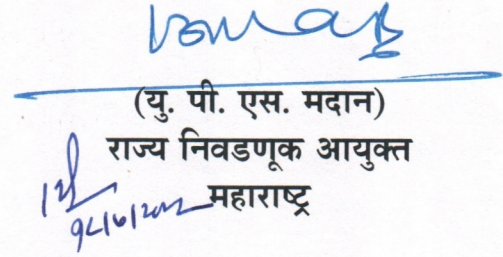 (यु. पी. एस. मदान)
राज्य निवडणूक आयुक्त
महाराष्ट्र